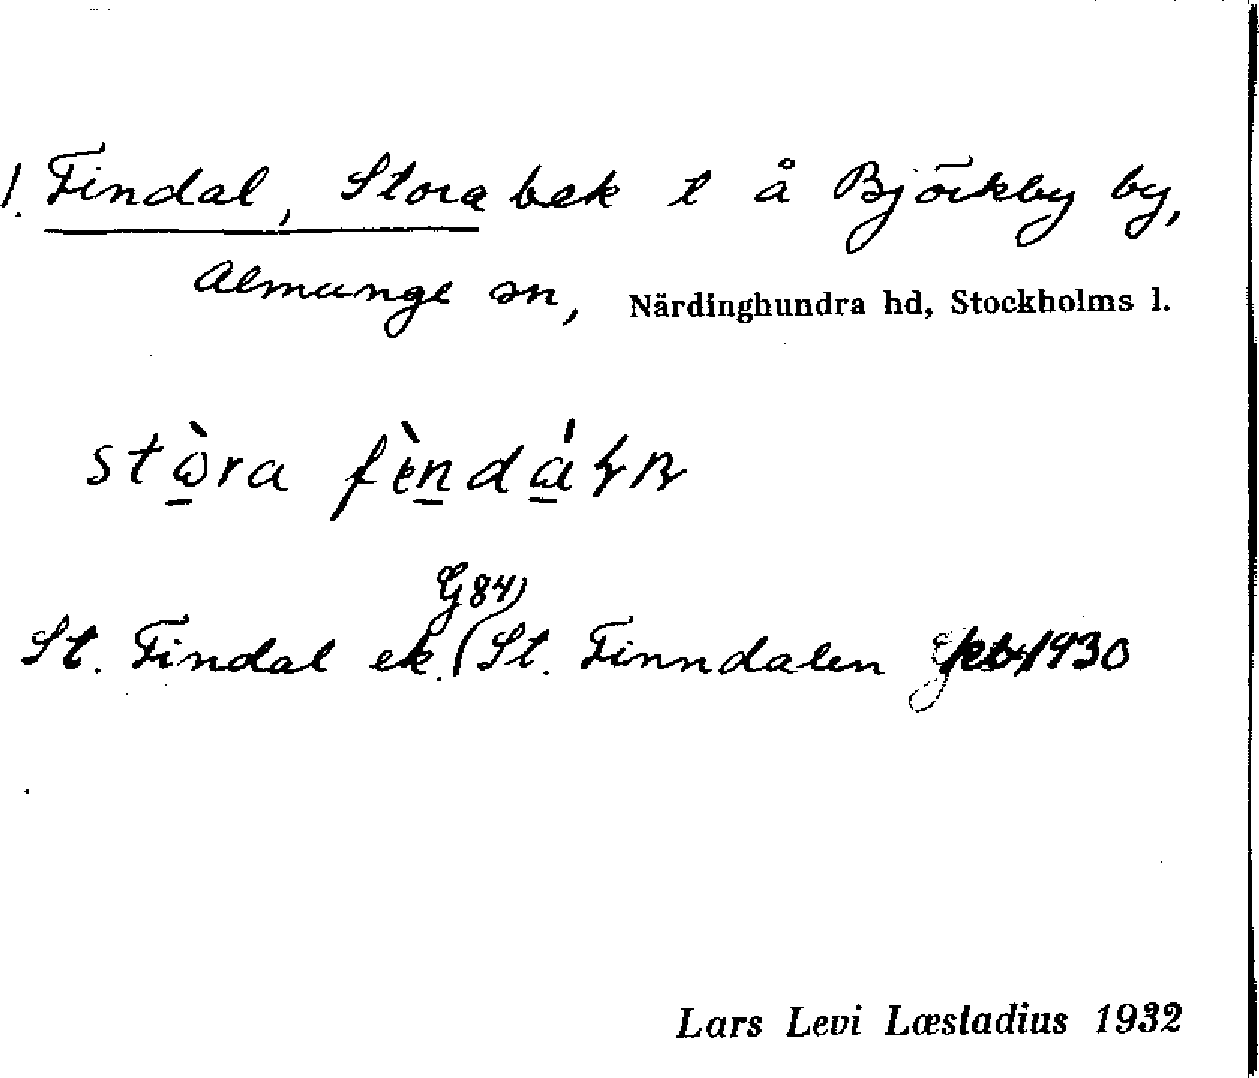 1. Findal, Stora bek t å Björkby by,
Almunge sn, Närdinghundra hd, Stockholms l.
stòra fìndáɫn
G 84)
St. Findal ek. (St. Finndalen 1930
Lars Levi Læstadius 1932